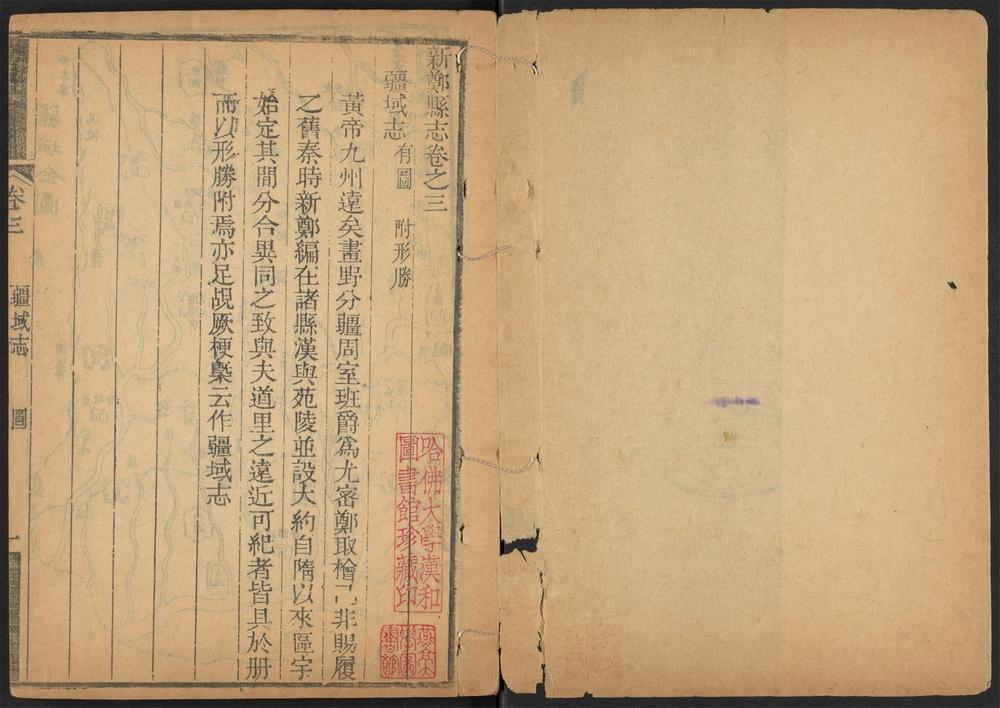 新鄭縣志卷之三
疆域志 有圖 附形勝
黃帝九州遠矣畫野分疆周室班爵爲尤密鄭取檜已非賜履
之舊秦時新鄭編在諸縣漢與苑陵並設大約自隋以來區宇
始定其間分合異同之致與夫道里之遠近可紀者皆具於册
而以形勝附焉亦足覘厥梗槩云作疆域志
卷三
疆域志
圖
一
哈佛大學漢和
圖書館珍藏印